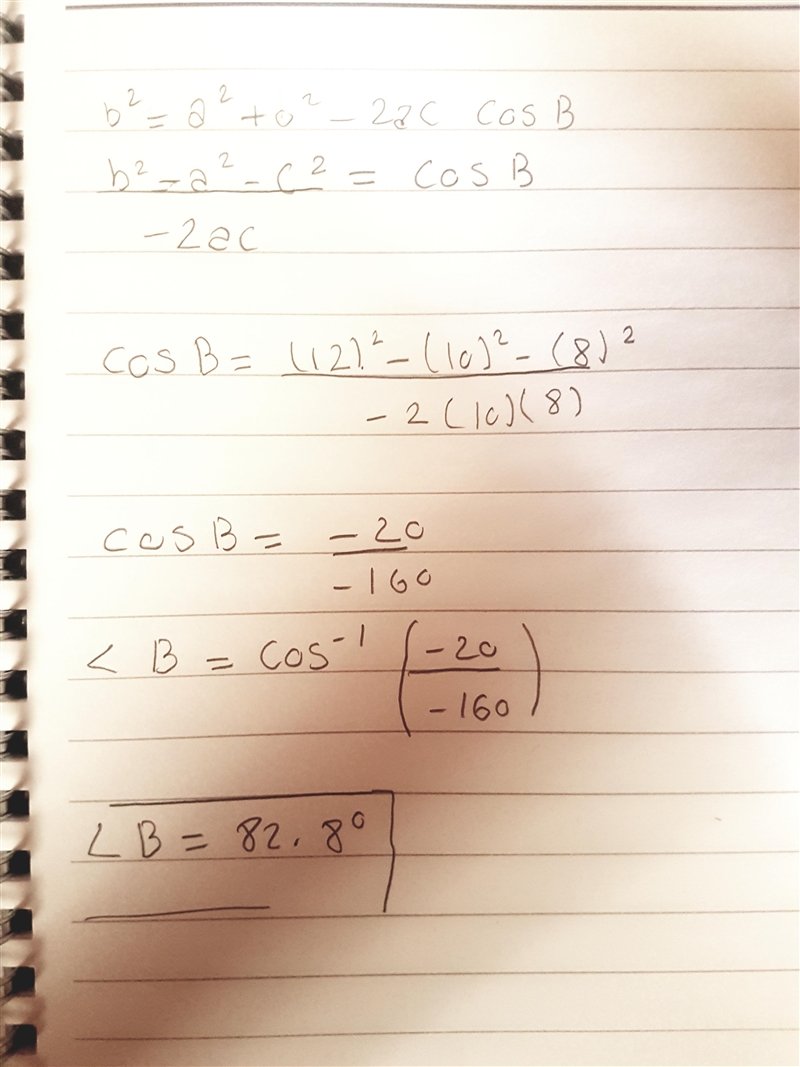 b² = a² + c² - 2ac cos B
b² - a² - c² = cos B
-2ac
cos B = (12)² - (10)² - (8)²
-2(10)(8)
cos B = -20
-160
< B = cos⁻¹ (-20
-160)
∠B = 82.8°